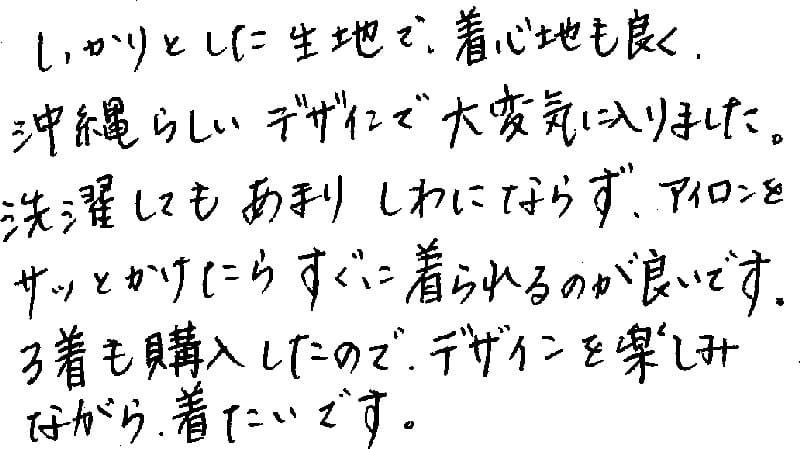 しっかりとした生地で、着心地も良く、
沖縄らしいデザインで大変気に入りました。
洗濯してもあまりしわにならず、アイロンを
サッとかけたらすぐに着られるのが良いです。
3着も購入したので、デザインを楽しみ
ながら、着たいです。